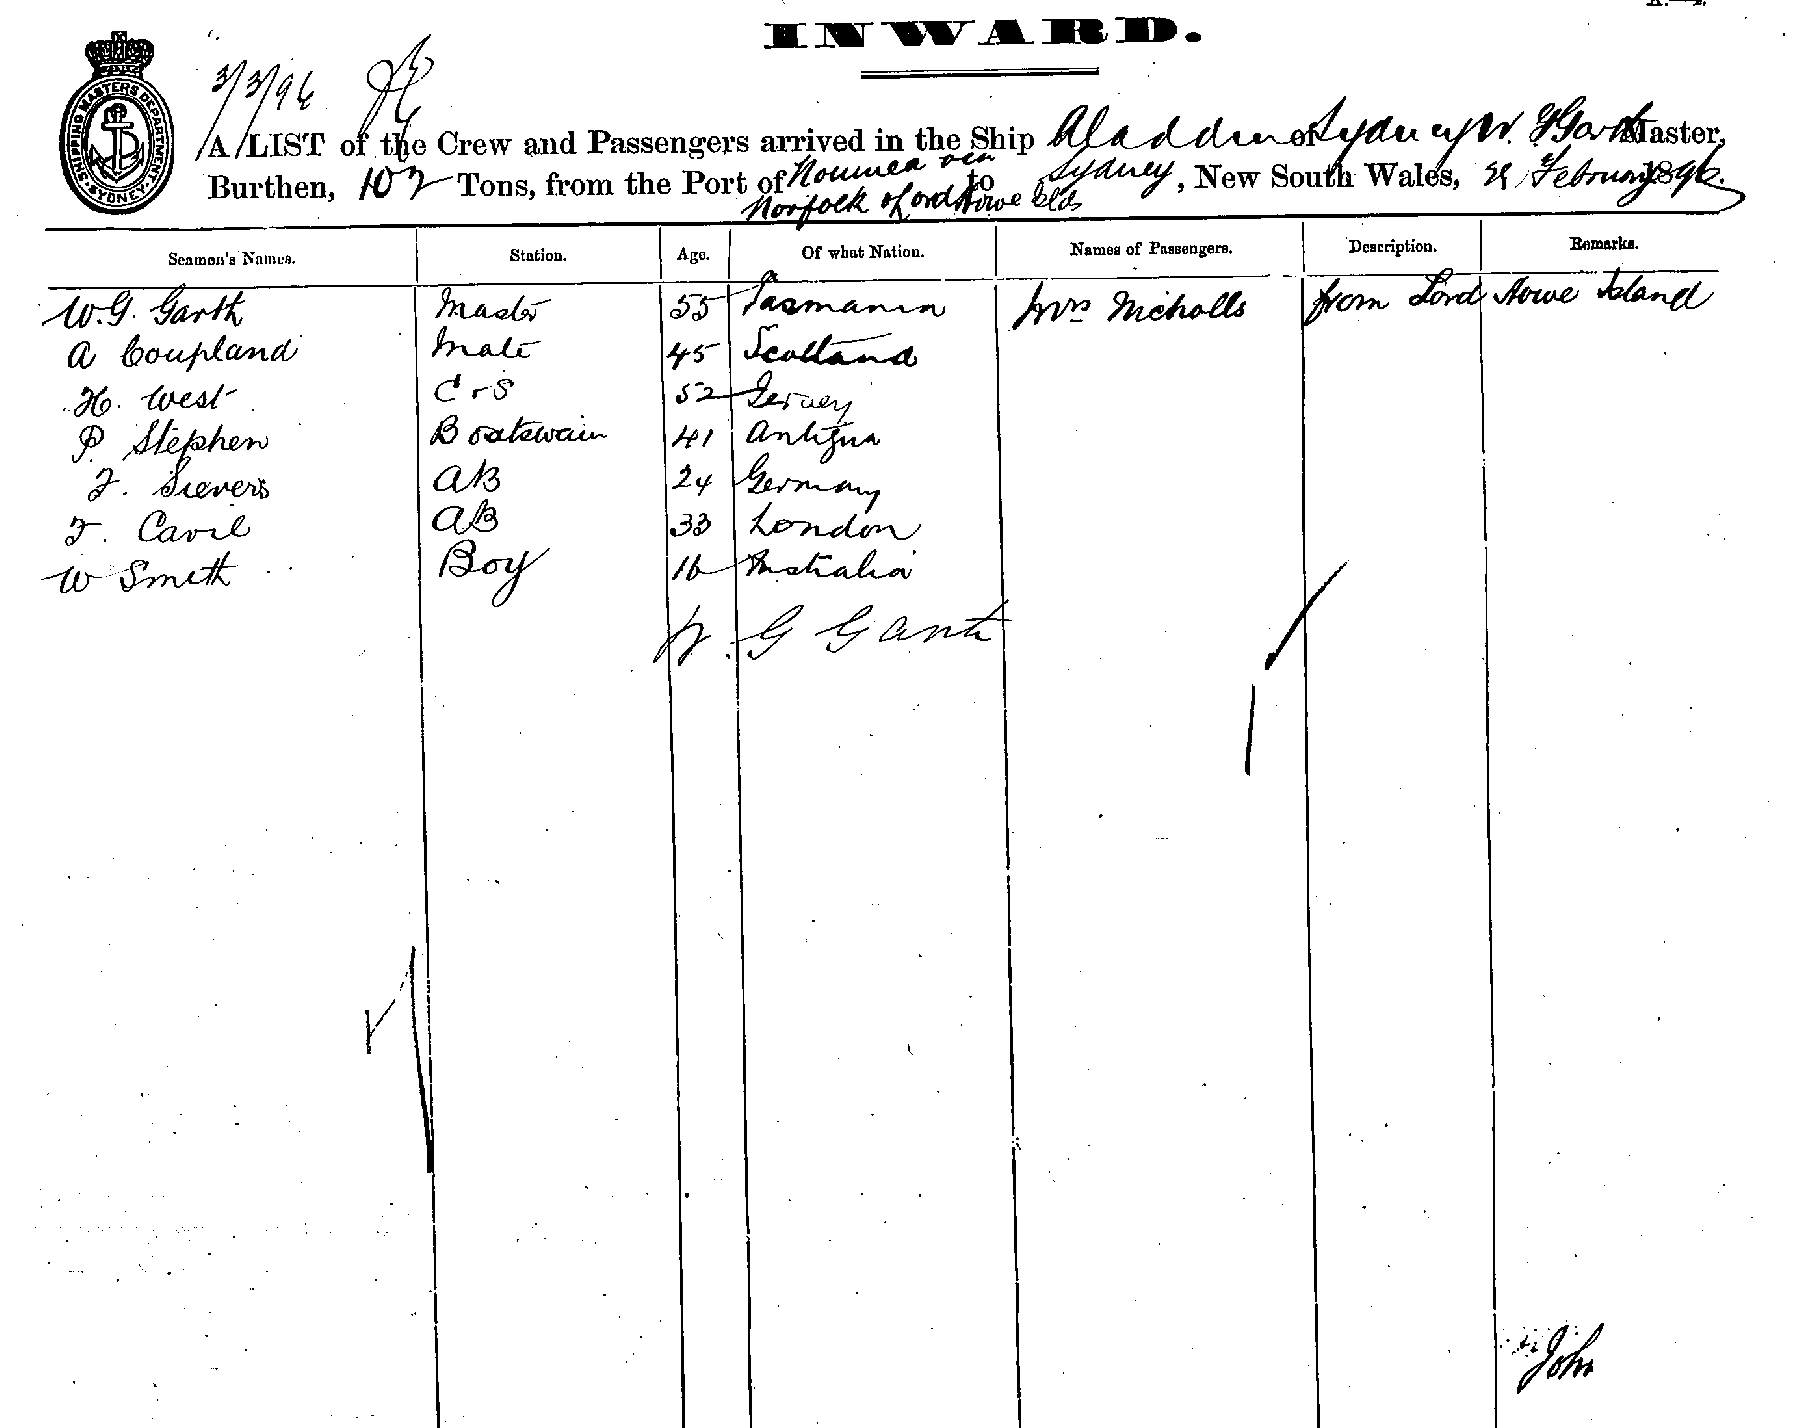 INWARD.
3/3/96
SHIPPING MASTERS DEPARTMENT. SYDNEY.
A LIST of the Crew and Passengers arrived in the Ship Aladdin of Sydney W. G Garth Master,
Burthen, 102 Tons, from the Port of Noumea via Norfolk & Lord Howe Islds to Sydney, New South Wales, February 1896.
Seamen's Names. Station. Age. Of what Nation. Names of Passengers. Description. Remarks.
W. G. Garth Master 55 Tasmania Mrs Nicholls from Lord Howe Island
A Coupland Mate 45 Scotland
H. West C & S 52 Jersey
P. Stephen Boatswain 41 Antigua
F. Sievers AB 24 Germany
F. Cavil AB 33 London
W Smith Boy 16 Australia
W. G Garth
John